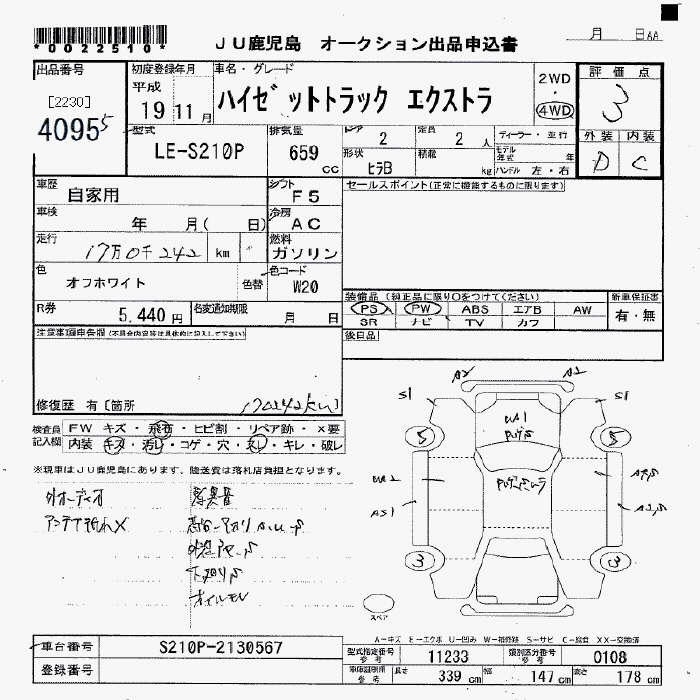 *0022510*
JU鹿児島 オークション出品申込書
月 日AA
出品番号
[2230]
40955
初度登録年月
平成
19 11 月
車名・グレード
ハイゼットトラック エクストラ
2WD
・
4WD
評価点
3
外装 内装
D C
型式
LE-S210P
排気量
659 cc
ドア
2
定員
2 人
形状
ヒラB
積載
kg
ディーラー・並行
モデル年式 年
ハンドル 左・右
車歴
自家用
シフト
F5
セールスポイント(正常に機能するものに限ります)
車検
年 月( 日)
冷房
AC
走行
17万0千242 km
燃料
ガソリン
色
オフホワイト
色替
色コード
W20
R券
5,440 円
名変通知期限
月 日
装備品(純正品に限り○をつけてください)
PS PW ABS エアB AW
SR ナビ TV カワ
新車保証書
有・無
後日品
注意事項申告欄(不具合内容等は具体的に記入して下さい)
修復歴 有[箇所
170242km]
検査員記入欄
FW キズ・飛石・ヒビ割・リペア跡・×要
内装 キズ・汚レ・コゲ・穴・スレ・キレ・破レ
※現車はJU鹿児島にあります、陸送費は落札店負担となります。
外オーディオ
アンテナ折れ×
A2 A2
S1 S1
UA1
5 5
UA2
AS1
3 3
スペア
A-キズ E-エクボ U-凹み W-補修跡 S-サビ C-腐食 XX-交換済
車台番号
S210P-2130567
登録番号
型式指定番号
参考
11233
類別区分番号
参考
0108
車庫証明用
参考
長さ 339 cm
幅 147 cm
高さ 178 cm